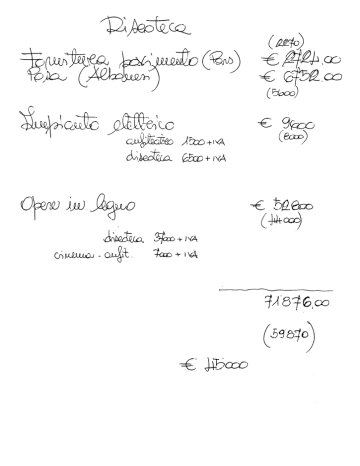 Discoteca
(2270)
Fornitura pavimento (Pans) € 2724,00
Posa (Albanesi) € 6752,00
(5600)
Impianto elettrico € 9600
(8000)
anfiteatro 1500 + IVA
discoteca 6500 + IVA
Opere in legno € 52800
(44000)
discoteca 37000 + IVA
cinema - anfit. 7000 + IVA
71876,00
(59870)
€ 45000